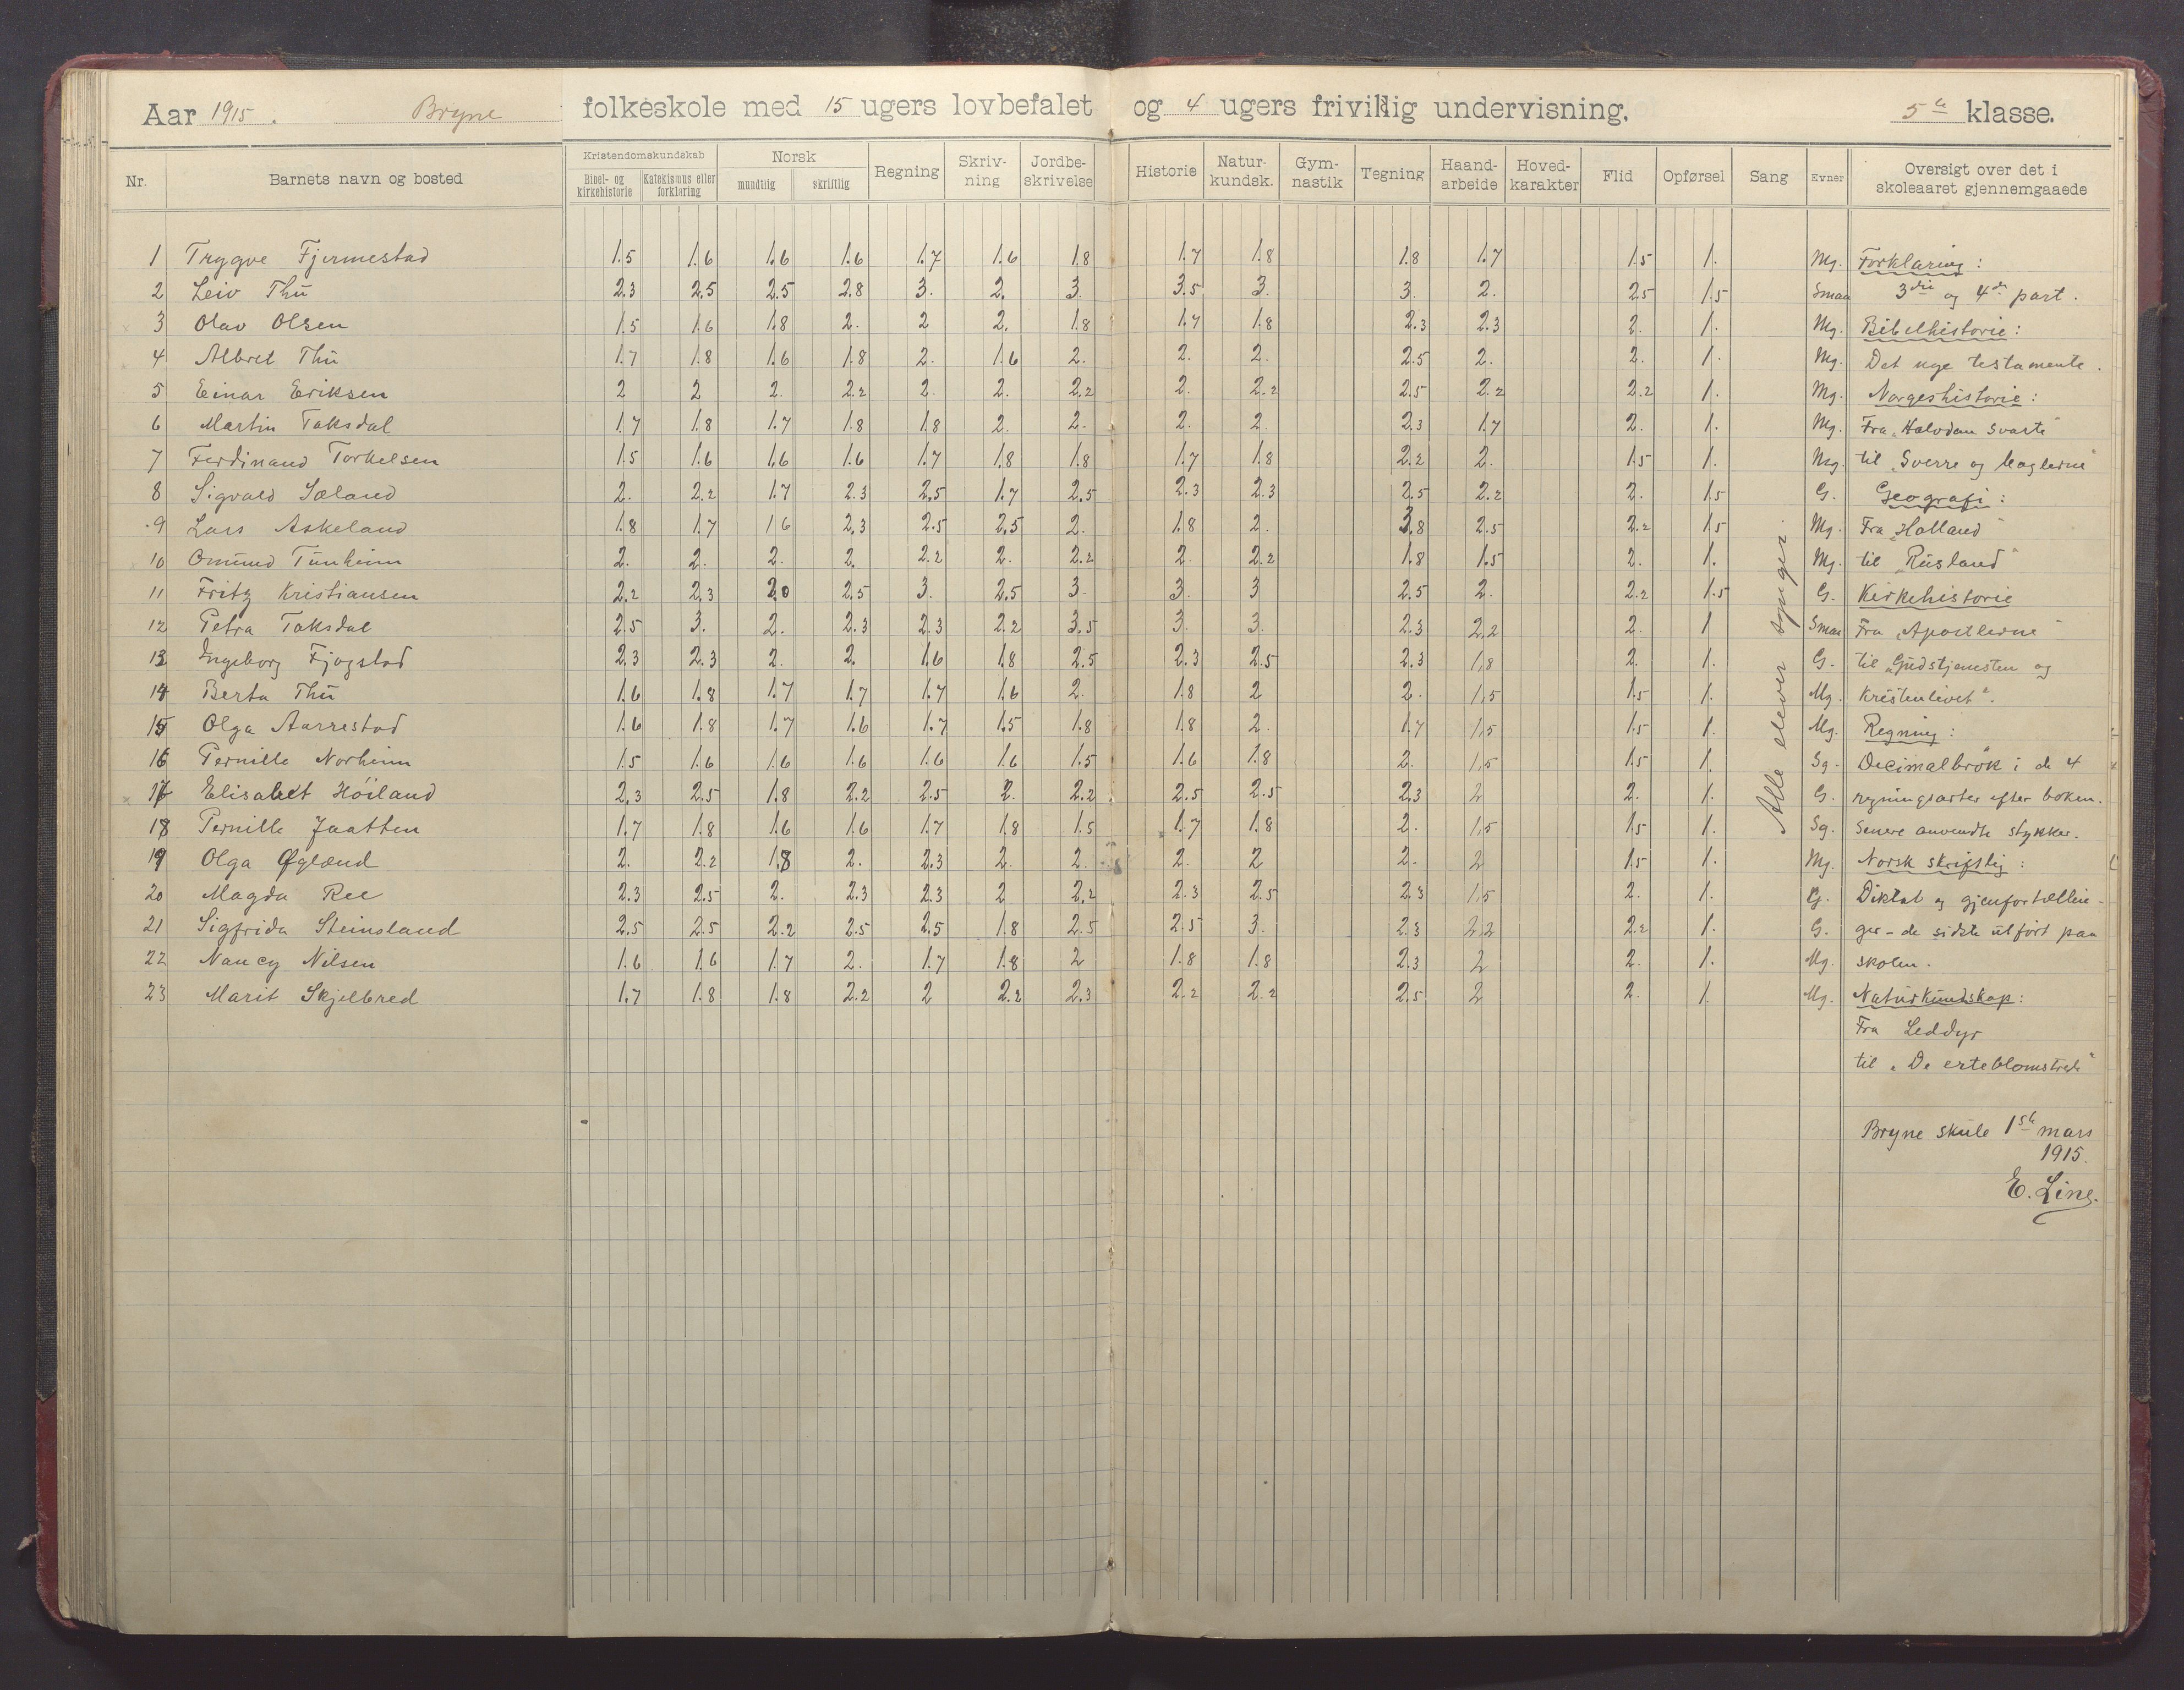 Aar 1915. Bryne folkeskole med 15 ugers lovbefalet og 4 ugers frivillig undervisning. 5te klasse.
Nr. Barnets navn og bosted Kristendomskundskab Bibel- og kirkehistorie Katekismus eller forklaring Norsk mundtlig skriftlig Regning Skriv-ning Jordbe-skrivelse Historie Natur-kundsk. Gym-nastik Tegning Haand-arbeide Hoved-karakter Flid Opførsel Sang Evner Oversigt over det i skoleaaret gjennemgaaede
1 Trygve Fjermestad 1.5 1.6 1.6 1.6 1.7 1.6 1.8 1.7 1.8 1.8 1.7 1.5 1. Mg. Forklaring:
2 Leiv Thu 2.3 2.5 2.5 2.8 3. 2. 3. 3.5 3. 3. 2. 2.5 1.5 Smaa 3die og 4de part.
3 Olav Olsen 1.5 1.6 1.8 2. 2 2. 1.8 1.7 1.8 2.3 2.3 2. 1. Mg. Bibelhistorie:
4 Albret Thu 1.7 1.8 1.6 1.8 2. 1.6 2. 2. 2. 2.5 2. 2. 1. Mg. Det nye testamente.
5 Einar Eriksen 2 2 2. 2.2 2. 2. 2.2 2. 2.2 2.5 2.2 2.2 1. Mg. Norgeshistorie:
6 Martin Taksdal 1.7 1.8 1.7 1.8 1.8 2. 2. 2. 2. 2.3 1.7 2. 1. Mg. Fra „Halvdan Svarte"
7 Ferdinand Torkelsen 1.5 1.6 1.6 1.6 1.7 1.8 1.8 1.7 1.8 2.2 2. 1.5 1. Mg. til „Sverre og baglerne"
8 Sigvald Sæland 2. 2.2 1.7 2.3 2.5 1.7 2.5 2.3 2.3 2.5 2.2 2. 1.5 G. Geografi:
9 Lars Askeland 1.8 1.7 1.6 2.3 2.5 2.5 2. 1.8 2. 3.8 2.5 2.2 1.5 Mg. Fra „Holland"
10 Omund Tunheim 2. 2. 2. 2. 2.2 2. 2.2 2. 2.2 1.8 1.5 2. 1. Mg. til „Rusland"
11 Fritz Kristiansen 2.2 2.3 2.0 2.5 3. 2.5 3. 3. 3 2.5 2. 2.2 1.5 G. Kirkehistorie
12 Petra Taksdal 2.5 3. 2. 2.3 2.3 2.2 3.5 3. 3. 2.3 2.2 2. 1 Smaa Fra „Apostlerne"
13 Ingeborg Fjogstad 2.3 2.3 2. 2. 1.6 1.8 2.5 2.3 2.5 2.3 1.8 2. 1. G. til „Gudstjenesten og
14 Berta Thu 1.6 1.8 1.7 1.7 1.7 1.6 2. 1.8 2 2. 1.5 1.5 1. Mg. Kristenlivet".
15 Olga Aarrestad 1.6 1.8 1.7 1.6 1.7 1.5 1.8 1.8 2. 1.7 1.5 1.5 1. Mg. Regning:
16 Pernille Norheim 1.5 1.6 1.6 1.6 1.6 1.6 1.5 1.6 1.8 2. 1.5 1.5 1. Sg. Decimalbrøk i de 4
17 Elisabet Höiland 2.3 2.5 1.8 2.2 2.5 2. 2.2 2.5 2.5 2.3 2 2. 1. G. regningsarter efter boken.
18 Pernille Jaatten 1.7 1.8 1.6 1.6 1.7 1.8 1.5 1.7 1.8 2. 1.5 1.5 1. Sg. Senere anvendte stykker.
19 Olga Øglænd 2. 2.2 1.8 2. 2.3 2. 2. 2. 2 2. 2 1.5 1. Mg. Norsk skriftlig:
20 Magda Ree 2.3 2.5 2. 2.3 2.3 2 2.2 2.3 2.5 2.3 1.5 2. 1. G. Diktat og gjenfortællin-
21 Sigfrida Steinsland 2.5 2.5 2.2 2.5 2.5 1.8 2.5 2.5 3. 2.3 2.2 2.2 1. G. ger – de sidste utført paa
22 Nancy Nilsen 1.6 1.6 1.7 2. 1.7 1.8 2 1.8 1.8 2.3 2 2. 1. Mg. skolen.
23 Marit Skjelbred 1.7 1.8 1.8 2.2 2 2.2 2.3 2.2 2.2 2.5 2 2. 1. Mg. Naturkundskap:
Alle elever synger.
Fra Leddyr
til „De erteblomstrede"
Bryne skule 1ste mars
1915.
E. Line.